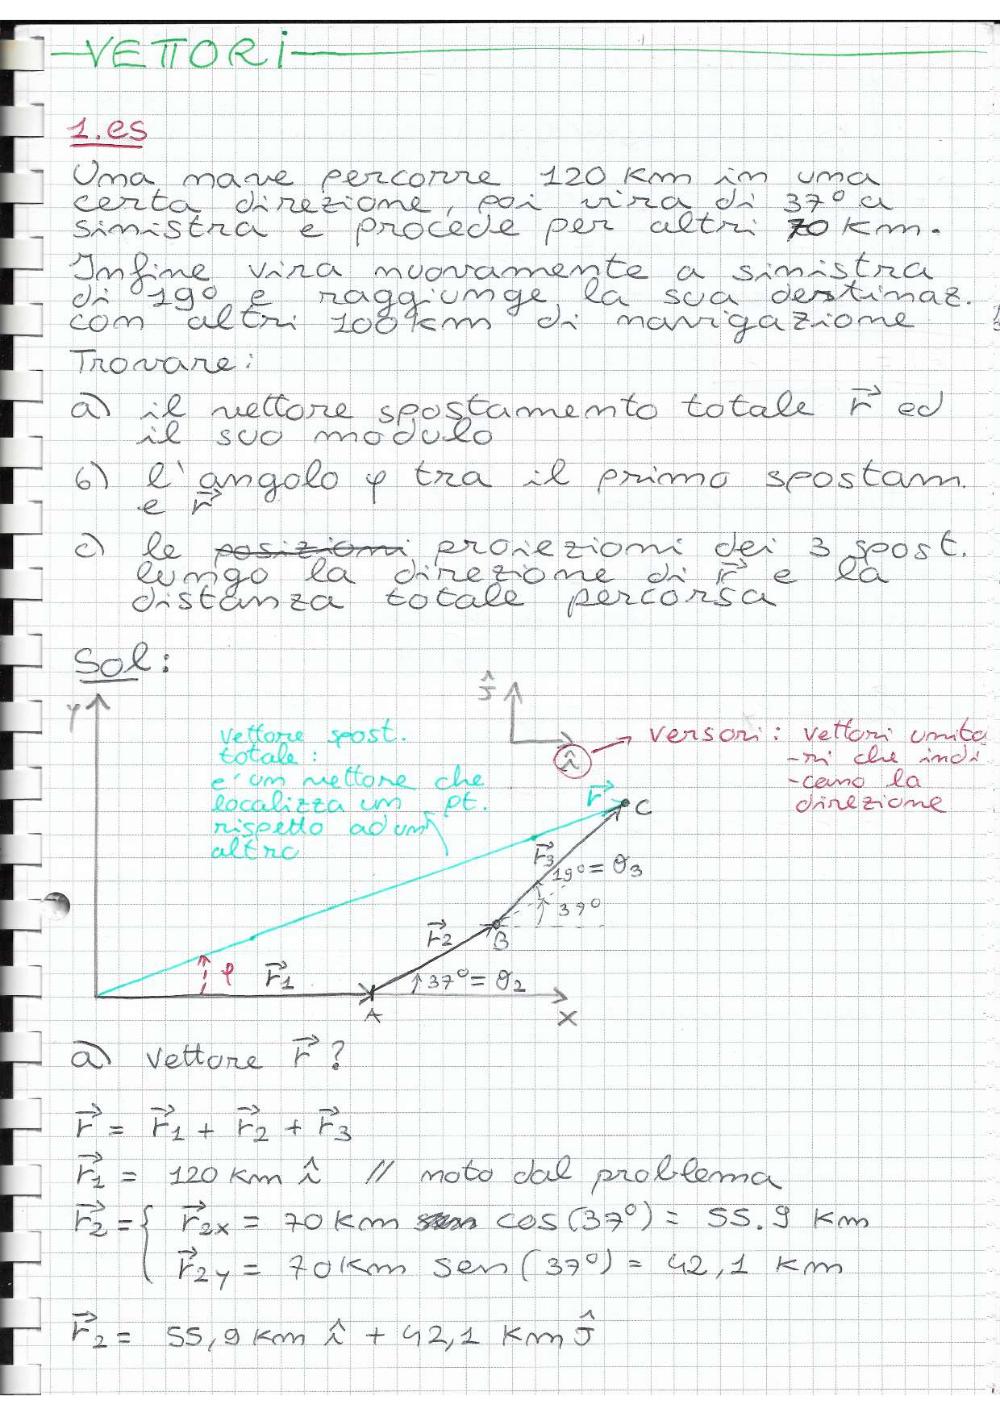 VETTORI
1.es
Una nave percorre 120 km in una
certa direzione, poi vira di 37° a
sinistra e procede per altri 70 km.
Infine vira nuovamente a sinistra
di 19° e raggiunge la sua destinaz.
con altri 100 km di navigazione
Trovare:
a) il vettore spostamento totale r⃗ ed
il suo modulo
b) l'angolo φ tra il primo spostam.
e r⃗
c) le posizioni proiezioni dei 3 spost.
lungo la direzione di r⃗ e la
distanza totale percorsa
Sol:
y
ĵ
î
versori: vettori unita
-ri che indi
-cano la
direzione
vettore spost.
totale:
e' un vettore che
localizza un pt.
rispetto ad un
altro
r⃗
C
r⃗3
19° = θ3
37°
r⃗2
B
φ
r⃗1
37° = θ2
A
x
a) vettore r⃗ ?
r⃗ = r⃗1 + r⃗2 + r⃗3
r⃗1 = 120 km î // noto dal problema
r⃗2 = { r⃗2x = 70 km sen cos(37°) = 55.9 km
r⃗2y = 70 km sen(37°) = 42,1 km
r⃗2 = 55,9 km î + 42,1 km ĵ